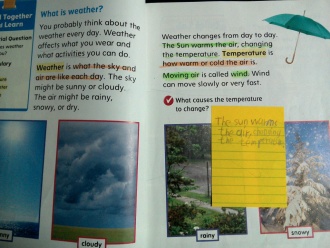 Together
Learn
What is weather?
You probably think about the
weather every day. Weather
affects what you wear and
what activities you can do.
Weather is what the sky and
air are like each day. The sky
might be sunny or cloudy.
The air might be rainy,
snowy, or dry.
cloudy
Weather changes from day to day.
The Sun warms the air, changing
the temperature. Temperature is
how warm or cold the air is.
Moving air is called wind. Wind
can move slowly or very fast.
What causes the temperature
to change?
The sun warms
the air
the
rainy
snowy